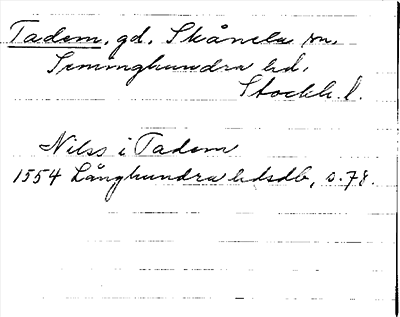 Tadem, gd, Skånela sn,
Seminghundra hd,
Stockh. l.
Nilss i Tadem
1554 Långhundra hdsdb, s. 78.